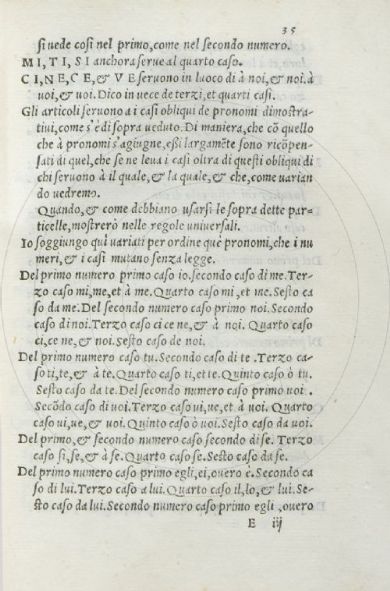 35
si uede cosi nel primo, come nel secondo numero.
MI, TI, SI anchora serue al quarto caso.
CI, NE, CE, & VE seruono in luoco di à noi, & noi. à
uoi, & uoi. Dico in uece de terzi, et quarti casi.
Gli articoli seruono a i casi obliqui de pronomi dimostra-
tiui, come s'è di sopra ueduto. Di maniera, che cō quello
che à pronomi s'agiugne, essi largamēte sono ricōpen-
sati di quel, che se ne leua i casi oltra di questi obliqui di
chi seruono à il quale, & la quale, & che, come uarian
do uedremo.
Quando, & come debbiano usarsi le sopra dette par-
ticelle, mostrerò nelle regole uniuersali.
Io soggiungo quì uariati per ordine que pronomi, che i nu
meri, & i casi mutano senza legge.
Del primo numero primo caso io. secondo caso di me. Ter-
zo caso mi, me, et à me. Quarto caso mi, et me. Sesto ca
so da me. Del secondo numero primo noi. Secondo
caso di noi. Terzo caso ci ce ne, & à noi. Quarto caso
ci, ce ne, & noi. Sesto caso de noi.
Del primo numero caso tu. Secondo caso di te. Terzo ca-
so ti, te, & à te. Quarto caso ti, et te. Quinto caso ò tu.
Sesto caso da te. Del secondo numero caso primo uoi.
Secōdo caso di uoi. Terzo caso ui, ue, et à uoi. Quarto
caso ui, ue, & uoi. Quinto caso ò uoi. Sesto caso da uoi.
Del primo, & secondo numero caso secondo di se. Terzo
caso si, se, & à se. Quarto caso se. Sesto caso da se.
Del primo numero caso primo egli, ei, ouero è. Secondo ca
so di lui. Terzo caso a lui. Quarto caso il, lo, & lui. Se-
sto caso da lui. Secondo numero caso primo egli, ouero
E iij